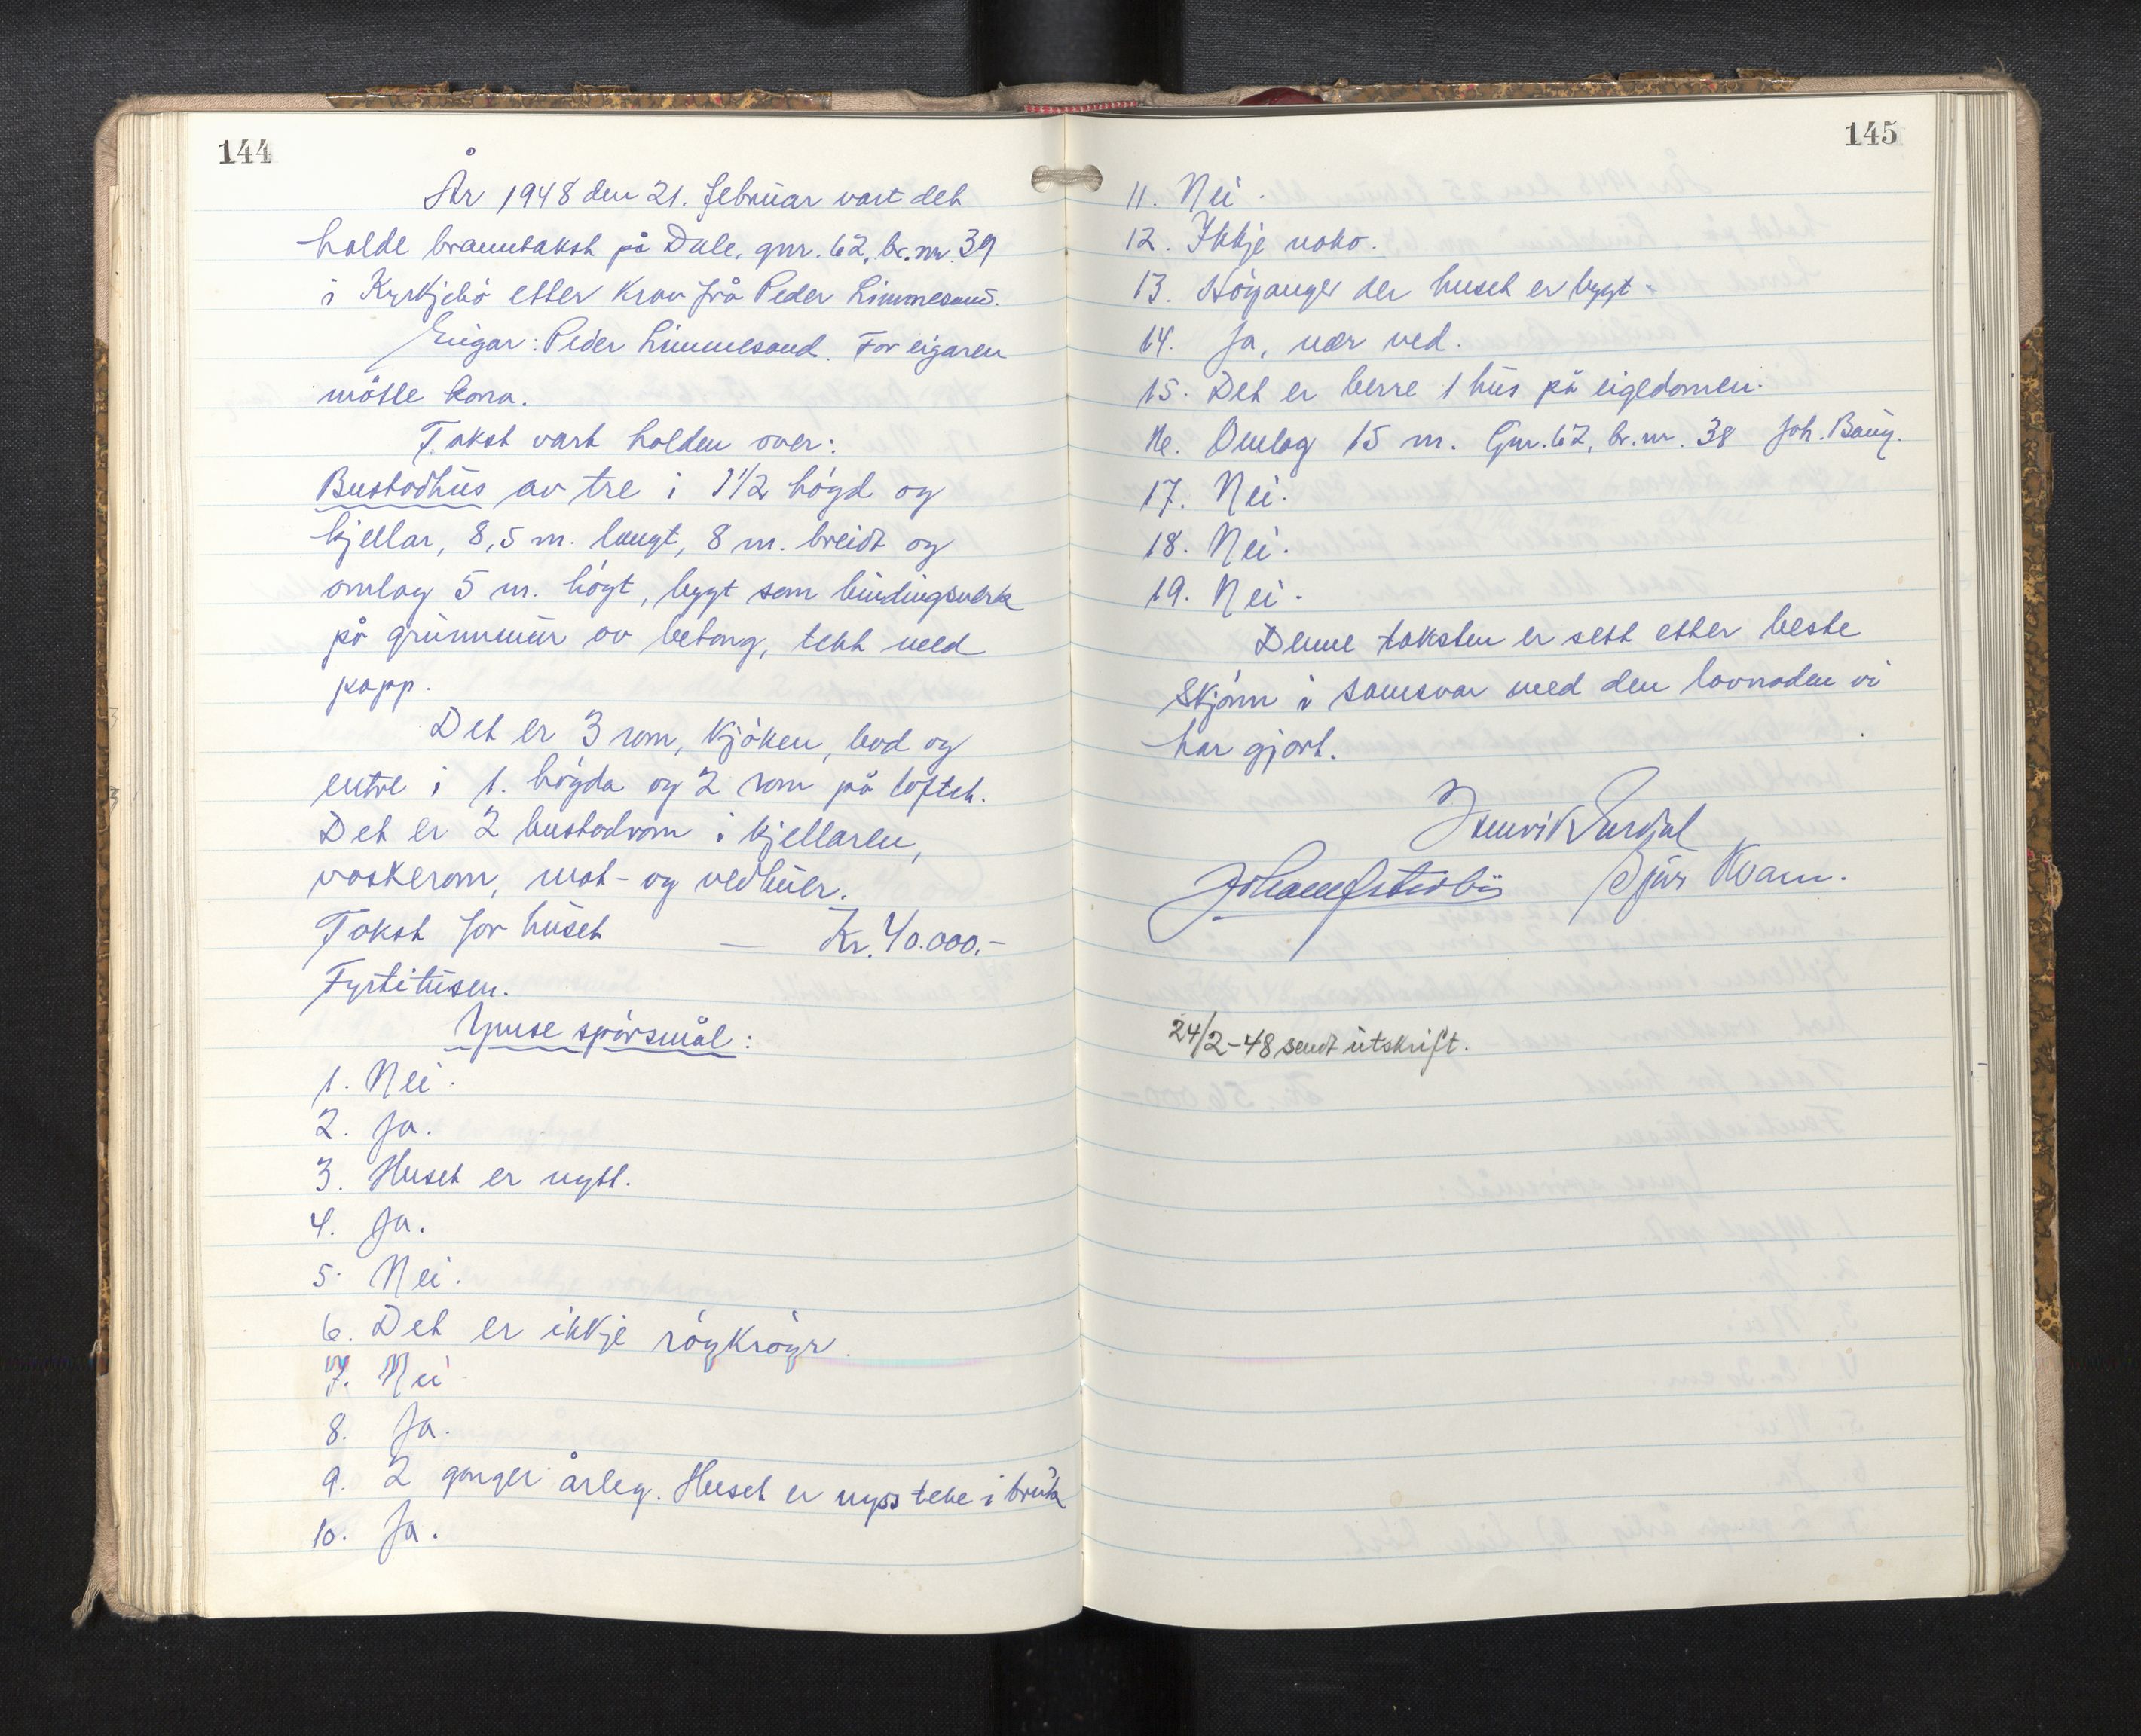 144
År 1948 den 21. februar vart det
halde branntakst på Dale, gnr. 62, br.nr. 39
i Kyrkjebö etter krav frå Peder Limmesand.
Eigar: Peder Limmesand. For eigaren
mötte kona.
Takst vart halden over:
Bustadhus av tre i 1 1/2 högd og
kjellar, 8,5 m. langt, 8 m. breidt og
omlag 5 m. högt, bygt som bindingsverk
på grunnmur av betong, tekt med
papp.
Det er 3 rom, kjöken, bod og
entre i 1. högda og 2 rom på loftet.
Det er 2 bustadrom i kjellaren,
vaskerom, mat- og vedbuer.
Takst for huset — Kr. 40.000.-
Fyrtitusen.
Ymse spörsmål:
1. Nei.
2. Ja.
3. Huset er nytt.
4. Ja.
5. Nei.
6. Det er ikkje röykröyr.
7. Nei
8. Ja.
9. 2 gonger årleg. Huset er nyss teke i bruk
10. Ja.
145
11. Nei.
12. Ikkje noko.
13. Höyanger der huset er bygt.
14. Ja, nær ved.
15. Det er berre 1 hus på eigedomen.
16. Omlag 15 m. Gnr. 62, br.nr. 38 Joh. Bang.
17. Nei.
18. Nei.
19. Nei.
Denne taksten er sett etter beste
skjönn i samsvar med den lovnaden vi
har gjort.
Sjur Kvam.
24/2-48 sendt utskrift.